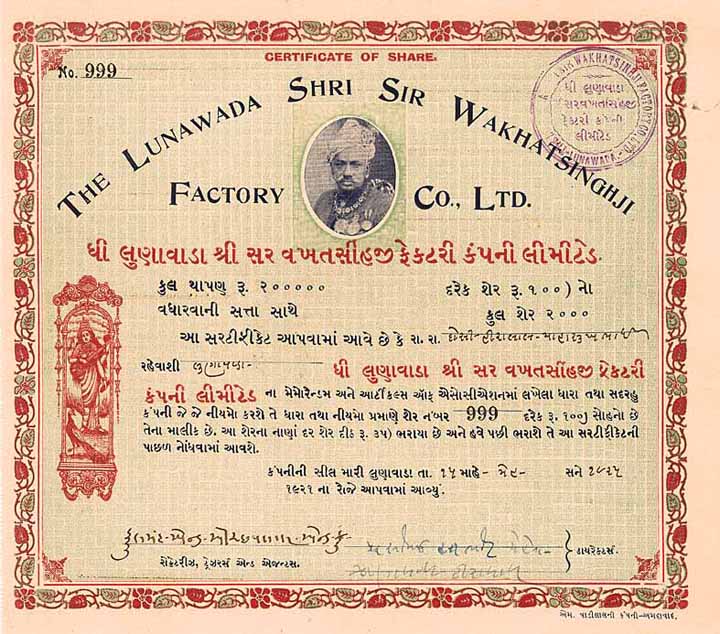 CERTIFICATE OF SHARE.
No. 999
THE LUNAWADA SHRI SIR WAKHATSINGHJI
FACTORY CO., LTD.
ધી લુણાવાડા
સરવખતસીંહજી
ફેક્ટરી કંપની
લીમીટેડ
ધી લુણાવાડા શ્રી સર વખતસીંહજી ફેક્ટરી કંપની લીમીટેડ.
કુલ થાપણ રૂ. ૨૦૦૦૦૦ દરેક શેર રૂ. ૧૦૦) નો
વધારવાની સત્તા સાથે કુલ શેર ૨૦૦૦
આ સરટીફીકેટ આપવામાં આવે છે કે રા. રા.
રહેવાશી લુણાવાડા ધી લુણાવાડા શ્રી સર વખતસીંહજી ફેક્ટરી
કંપની લીમીટેડ ના મેમોરેન્ડમ અને આર્ટીકલ્સ ઑફ એસોસીએશનમાં લખેલા ધારા તથા સદરહુ
કંપની જે જે નીયમો કરશે તે ધારા તથા નીયમો પ્રમાણે શેર નંબર 999 દરેક રૂ. ૧૦૦) સોહનો છે
તેના માલીક છે. આ શેરના નાણાં દર શેર દીઠ રૂ. ૩૫) ભરાયા છે અને હવે પછી ભરાશે તે આ સરટીફીકેટની
પાછળ નોંધવામાં આવશે.
કંપનીની સીલ મારી લુણાવાડા તા. ૧૫ માહે- મે- સને ૧૯૨૫
૧૯૨૧ ના રોજે આપવામાં આવ્યું.
સેક્રેટરીઝ, ટ્રેઝરર્સ એન્ડ એજન્ટસ. ડાયરેક્ટર્સ.
એમ. વાડીલાલની કંપની-અમદાવાદ.